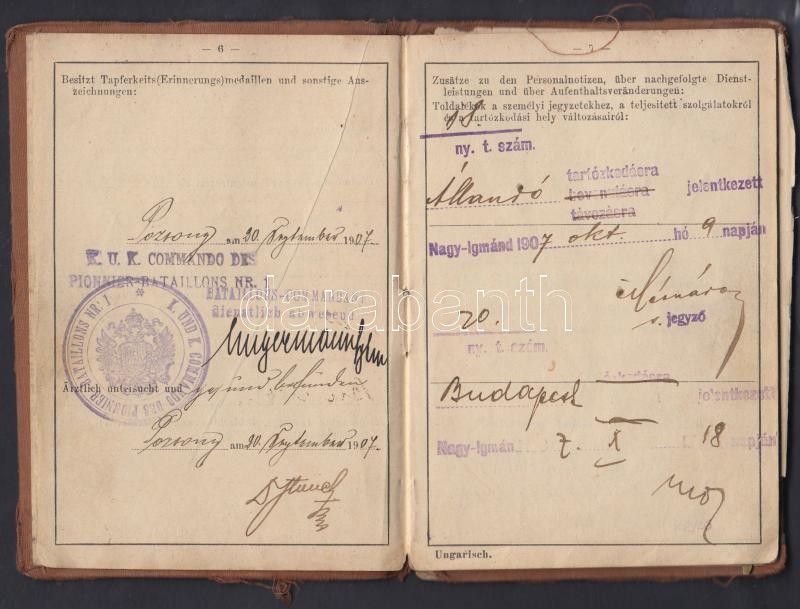 — 6 —
Besitzt Tapferkeits(Erinnerungs)medaillen und sonstige Aus-
zeichnungen:
Pozsony am 20. September 1907.
K. U. K. COMMANDO DES
PIONNIER-BATAILLONS NR. 1
BATAILLONS-COMMANDANT
dienstlich abwesend
K. UND K. COMMANDO DES PIONNIER-BATAILLONS NR. 1
Ärztlich untersucht und gesund befunden
Pozsony am 20. September 1907.
— 7 —
Zusätze zu den Personalnotizen, über nachgefolgte Dienst-
leistungen und über Aufenthaltsveränderungen:
Toldalékok a személyi jegyzetekhez, a teljesitett szolgálatokról
és a tartózkodási hely változásairól:
19.
ny. t. szám.
tartózkodásra
Állandó bevonulásra jelentkezett
távozásra
Nagy-Igmánd 1907 okt. hó 9 napján
s. jegyző
20.
ny. t. szám.
Budapest jelentkezett
Nagy-Igmánd X 18 napján
jegyző
Ungarisch.
darabanth